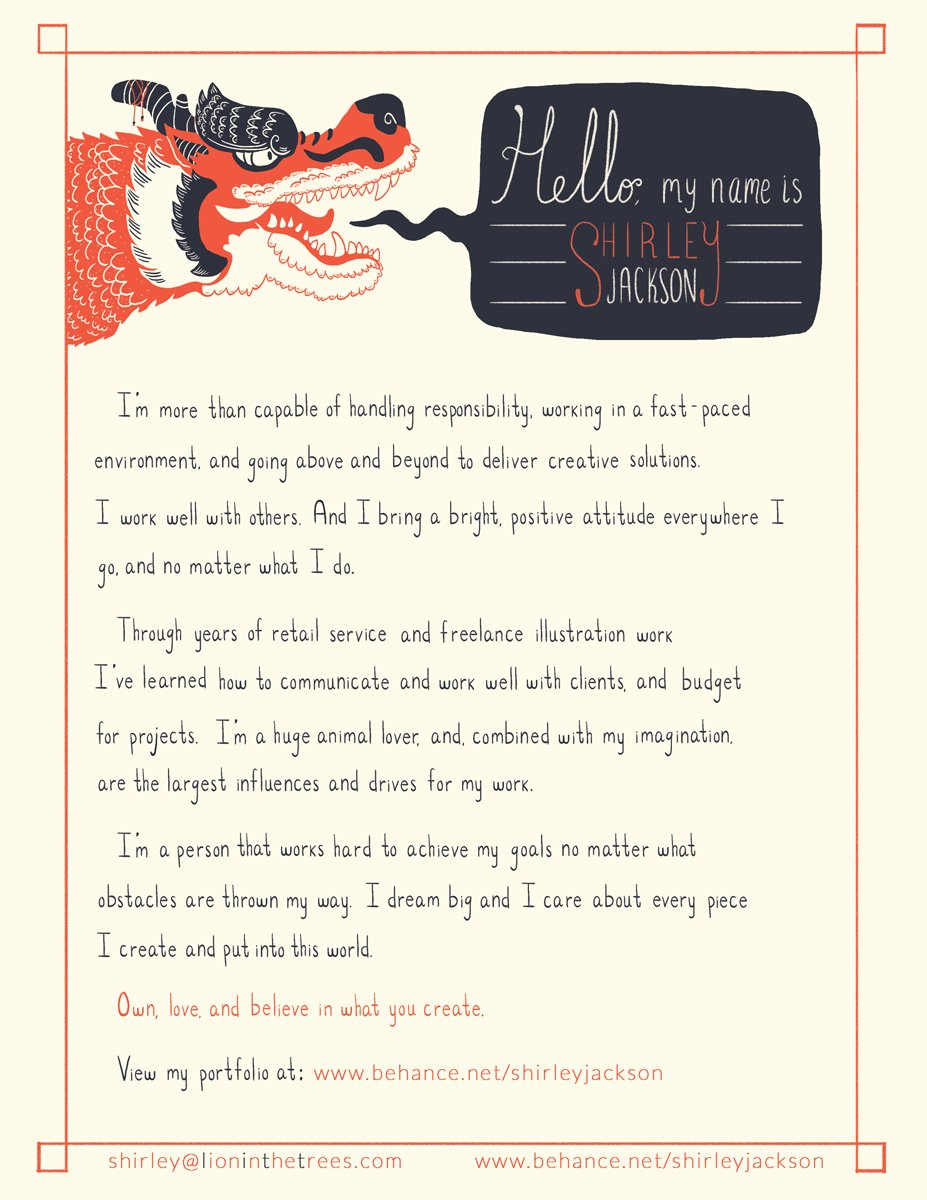 Hello, my name is
SHIRLEY
JACKSON
I'm more than capable of handling responsibility, working in a fast-paced
environment, and going above and beyond to deliver creative solutions.
I work well with others. And I bring a bright, positive attitude everywhere I
go, and no matter what I do.
Through years of retail service and freelance illustration work
I've learned how to communicate and work well with clients, and budget
for projects. I'm a huge animal lover, and, combined with my imagination,
are the largest influences and drives for my work.
I'm a person that works hard to achieve my goals no matter what
obstacles are thrown my way. I dream big and I care about every piece
I create and put into this world.
Own, love, and believe in what you create.
View my portfolio at: www.behance.net/shirleyjackson
shirley@lioninthetrees.com www.behance.net/shirleyjackson